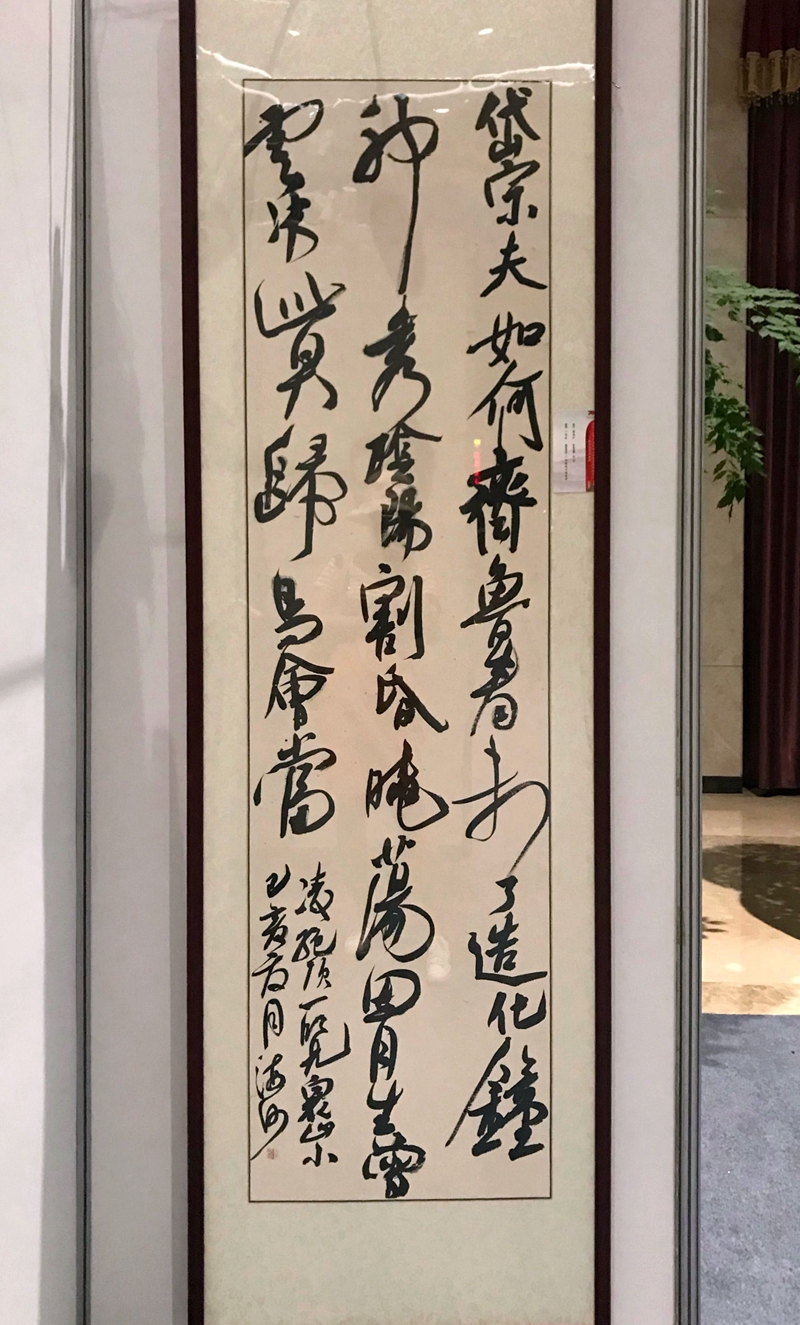 岱宗夫如何齊魯青未了造化鐘
神秀陰陽割昏曉蕩胸生曾
雲決眥入歸鳥會當
凌絕頂一覽衆山小
己亥月